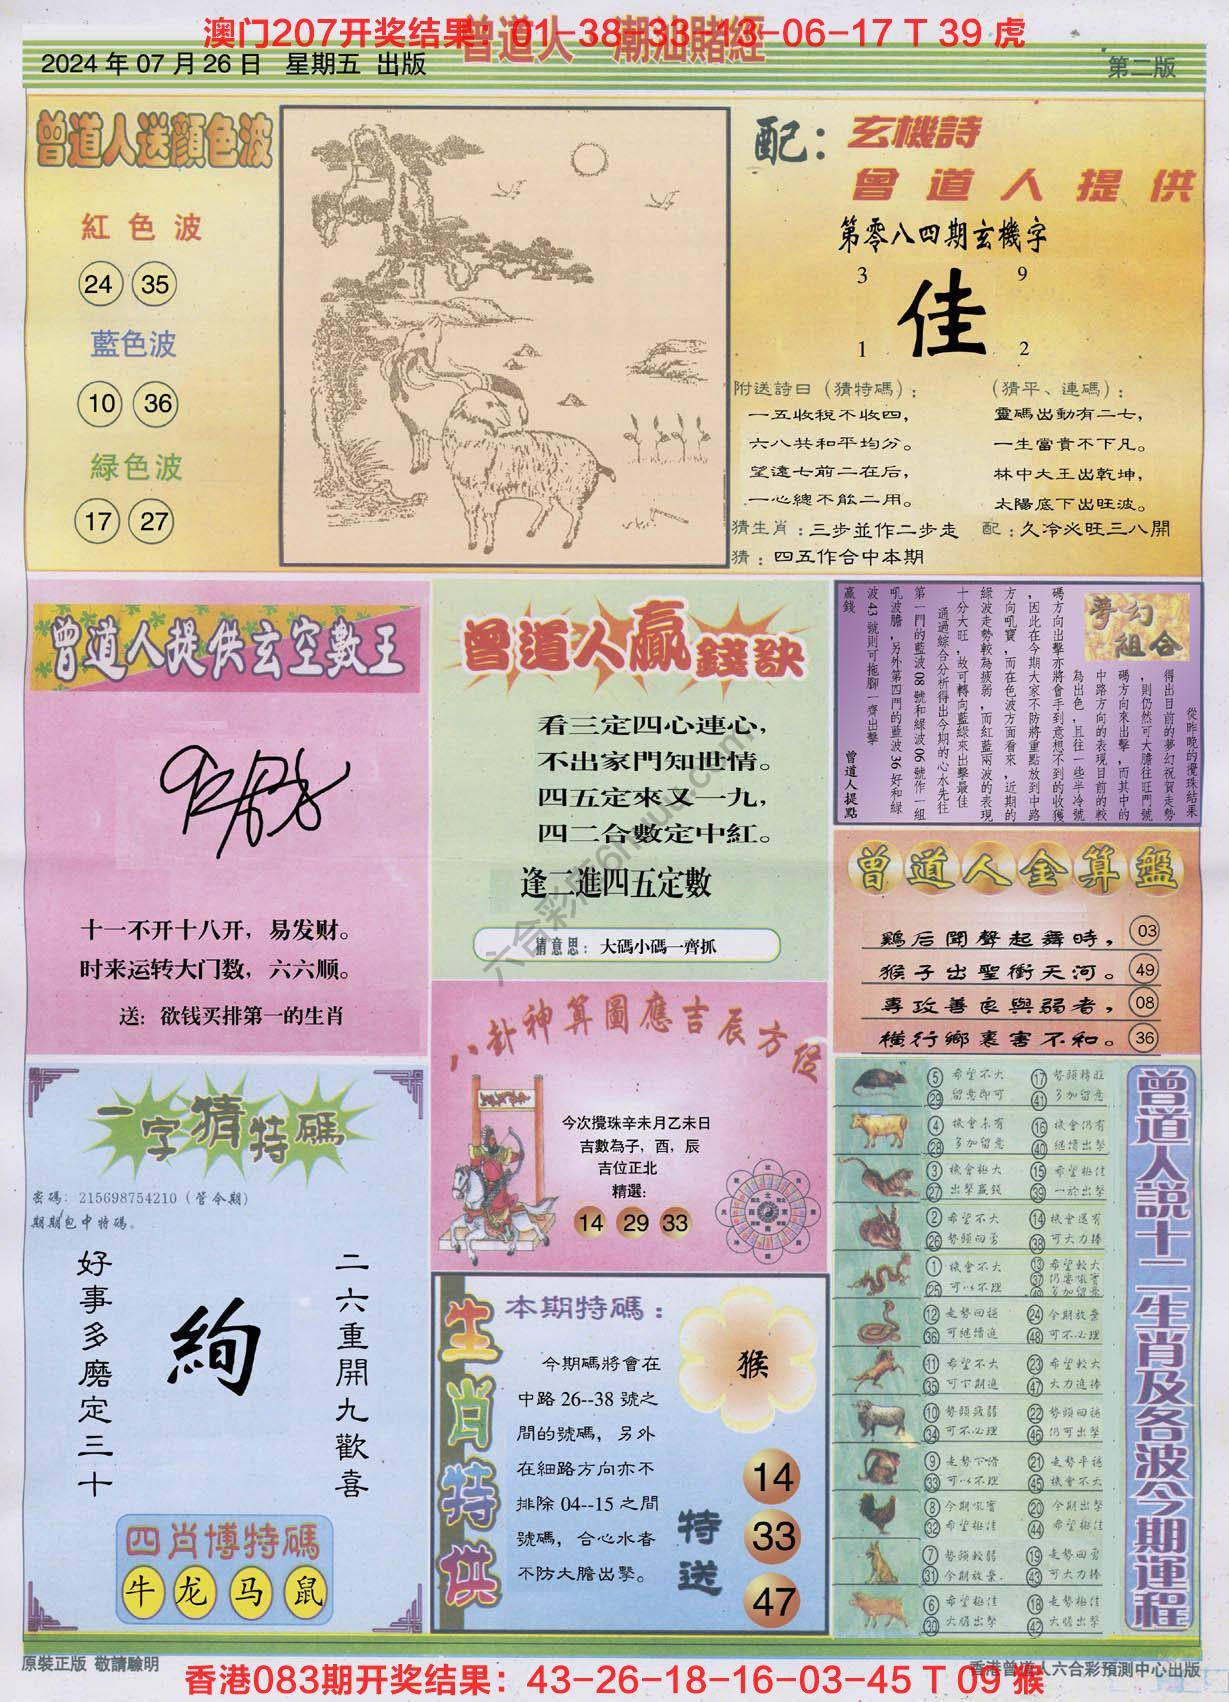 澳门207开奖结果：01-38-33-13-06-17 T 39 虎
曾道人 潮汕賭經
2024 年 07 月 26 日 星期五 出版
第二版
曾道人送顏色波
紅色波
24 35
藍色波
10 36
緑色波
17 27
配：玄機詩
曾道人提供
第零八四期玄機字
3 9
佳
1 2
附送詩曰（猜特碼）：
一五收稅不收四，
六八共和平均分。
望遠七前二在后，
一心總不能二用。
（猜平、連碼）：
靈碼出動有二七，
一生當貴不下凡。
林中大王出乾坤，
太陽底下出旺波。
猜生肖：三步並作二步走 配：久冷必旺三八開
猜：四五作合中本期
曾道人提供玄空數王
十一不开十八开，易发财。
时来运转大门数，六六顺。
送：欲钱买排第一的生肖
曾道人贏錢訣
看三定四心連心，
不出家門知世情。
四五定來又一九，
四二合數定中紅。
逢二進四五定數
猜意思：大碼小碼一齊抓
夢幻組合
從昨晚的攪珠結果
得出目前的夢幻祝賀走勢
，則仍然可大膽往旺門號
碼方向來出擊，而其中的
中路方向的表現目前的較
為出色，且往一些半冷號
碼方向出擊亦將會手到意想不到的收獲
，因此在今期大家不防將重點放到中路
方向吼寶，而在色波方面看來，近期的
綠波走勢較為疲弱，而紅藍兩波的表現
十分大旺，故可轉向藍綠來出擊最佳
通過綜合分析得出今期的心水先往
第一門的藍波 08 號和綠波 06 號作一組
吼波膽，另外第四門的藍波 36 好和綠
波 43 號則可拖腳一齊出擊
贏錢
曾道人提點
曾道人金算盤
鷄后聞聲起舞時，03
猴子出聖衝天河。49
專攻善良與弱者，08
橫行鄉裏害不和。36
八卦神算圖應吉辰方位
今次攪珠辛未月乙未日
吉數為子，酉，辰
吉位正北
精選：
14 29 33
一字猜特碼
密碼：215698754210（管今期）
期期包中特碼。
二六重開九歡喜
絢
好事多磨定三十
四肖博特碼
牛 龙 马 鼠
生肖特供
本期特碼：
今期碼將會在
中路 26--38 號之
間的號碼，另外
在細路方向亦不
排除 04--15 之間
號碼，合心水者
不防大膽出擊。
猴
特送
14
33
47
曾道人説十二生肖及各波今期運程
5 希望不大 17 勢頭轉旺
29 留意即可 41 多加留意
4 機會未有 16 機會仍有
28 多加留意 40 繼續出擊
3 機會極大 15 希望極佳
27 出擊贏錢 39 一於出擊
2 希望不大 14 機會還有
26 勢頭回勇 38 可大力捧
1 機會不大 13 希望較大
25 可以不理
12 走勢回穩 24 今期放棄
36 可繼續追 48 可不必理
11 希望不大 23 希望較大
35 可下期追 47 大力追捧
10 勢頭疲弱 22 勢頭回穩
34 可不必理 46 仍可出擊
9 走勢下滑 21 走勢平穩
33 可以不理 45 機會不大
8 今期吼寶 20 今期出擊
32 希望極佳 44 希望極佳
7 勢頭較弱 19 走勢回勇
31 今期放棄. 43 可大力捧
6 希望極佳 18 走勢極佳
30 大膽出擊 42 大膽出擊
六合彩库6hmu.com
原裝正版 敬請驗明
香港曾道人六合彩預測中心出版
香港083期开奖结果：43-26-18-16-03-45 T 09 猴